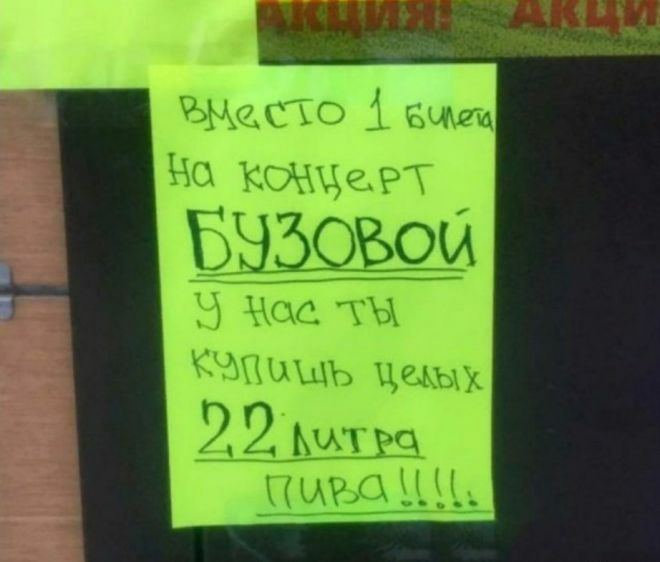 АКЦИЯ! АКЦИ
Вместо 1 билета
на концерт
БУЗОВОЙ
у нас ты
купишь целых
22 литра
пива!!!!!